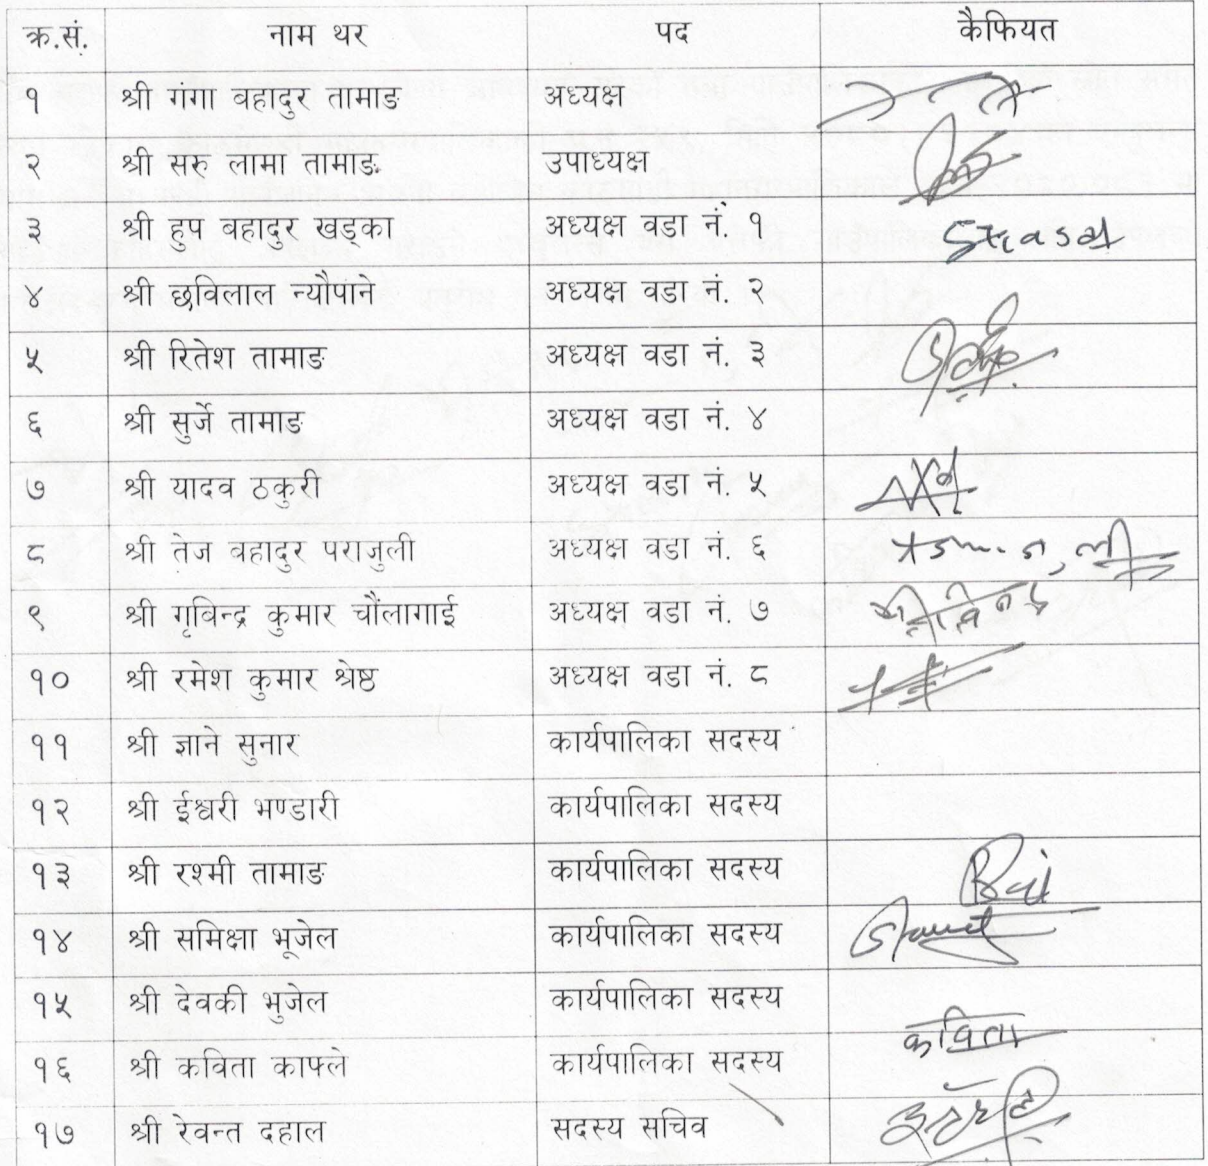 क्र.सं. नाम थर पद कैफियत
१ श्री गंगा बहादुर तामाङ अध्यक्ष
२ श्री सरु लामा तामाङ उपाध्यक्ष
३ श्री हुप बहादुर खड्का अध्यक्ष वडा नं. १
४ श्री छविलाल न्यौपाने अध्यक्ष वडा नं. २
५ श्री रितेश तामाङ अध्यक्ष वडा नं. ३
६ श्री सुर्जे तामाङ अध्यक्ष वडा नं. ४
७ श्री यादव ठकुरी अध्यक्ष वडा नं. ५
८ श्री तेज बहादुर पराजुली अध्यक्ष वडा नं. ६
९ श्री गृविन्द्र कुमार चौंलागाई अध्यक्ष वडा नं. ७
१० श्री रमेश कुमार श्रेष्ठ अध्यक्ष वडा नं. ८
११ श्री ज्ञाने सुनार कार्यपालिका सदस्य
१२ श्री ईश्वरी भण्डारी कार्यपालिका सदस्य
१३ श्री रश्मी तामाङ कार्यपालिका सदस्य
१४ श्री समिक्षा भूजेल कार्यपालिका सदस्य
१५ श्री देवकी भुजेल कार्यपालिका सदस्य
१६ श्री कविता काफ्ले कार्यपालिका सदस्य कविता
१७ श्री रेवन्त दहाल सदस्य सचिव